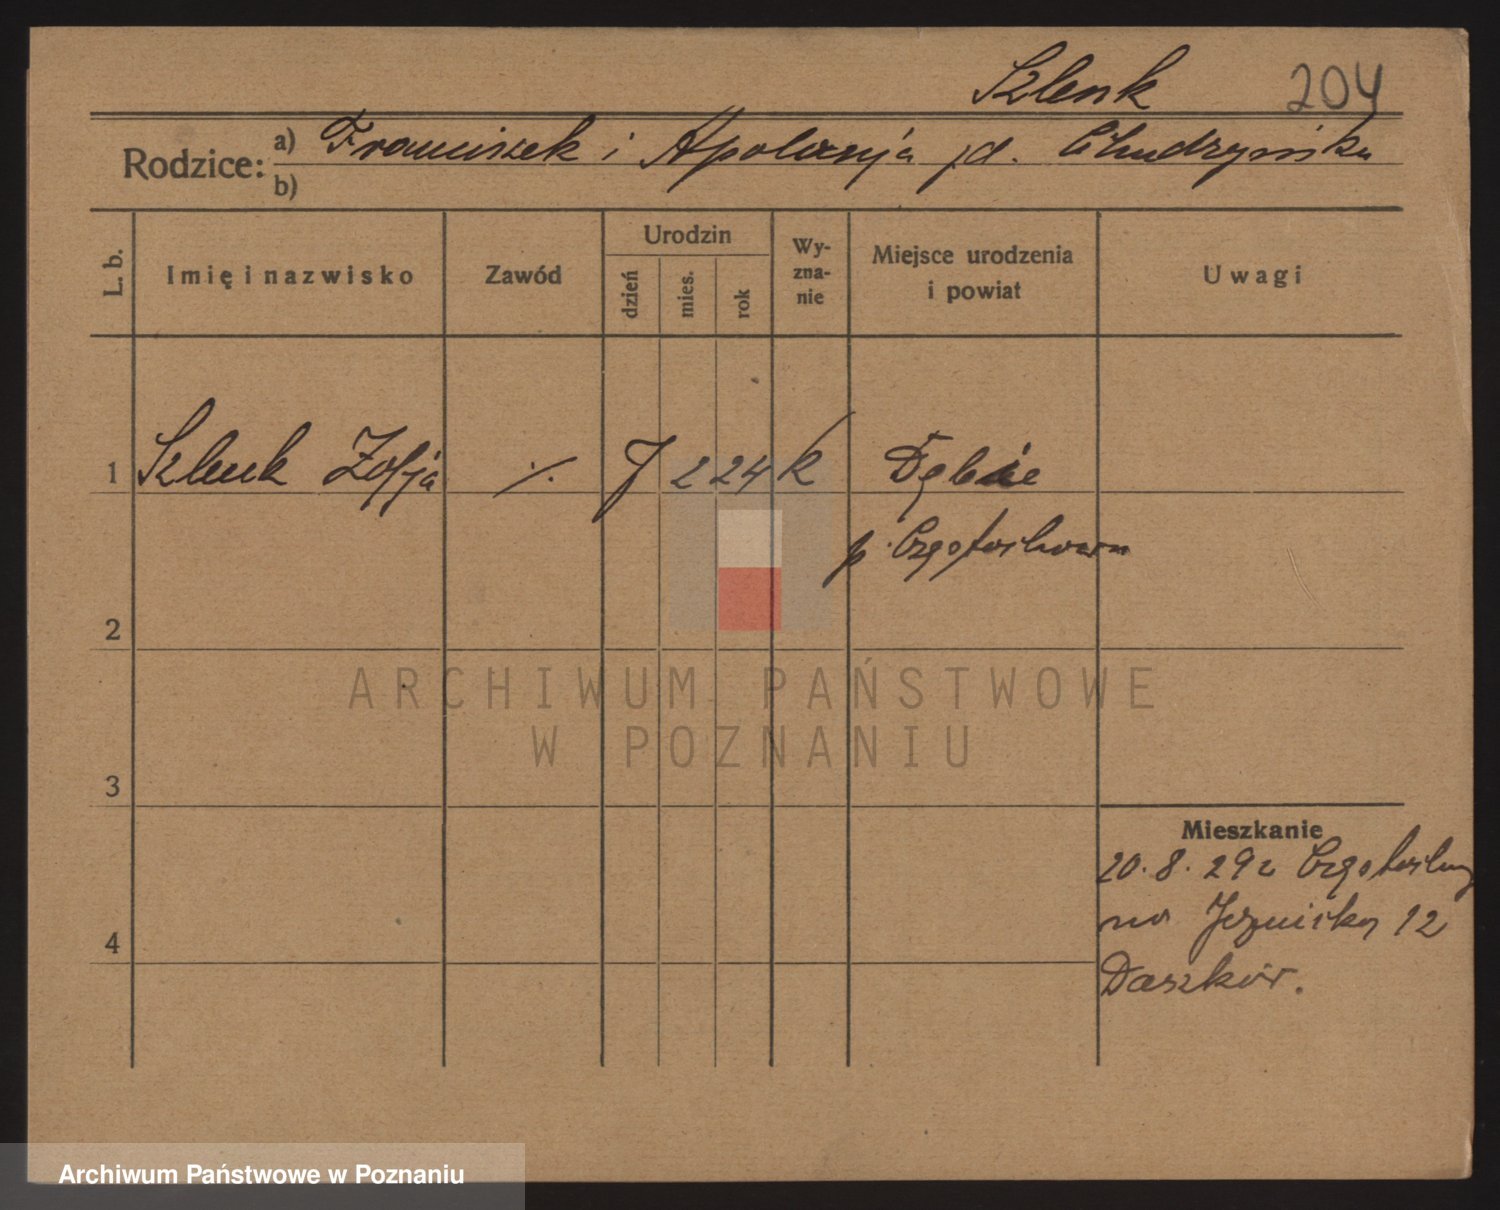 Szlenk 204
Rodzice: a) Franciszek i Apolonja Chudzyńska
b)
L. b. Imię i nazwisko Zawód Urodzin dzień mies. rok Wy-zna-nie Miejsce urodzenia i powiat Uwagi
1 Szlenk Zofja ./. 7 2 24 k Dębie
p. Częstochowa
2
ARCHIWUM PAŃSTWOWE
W POZNANIU
3
Mieszkanie
20.8.29 z Częstochowy
na 12
4
Daszków.
Archiwum Państwowe w Poznaniu